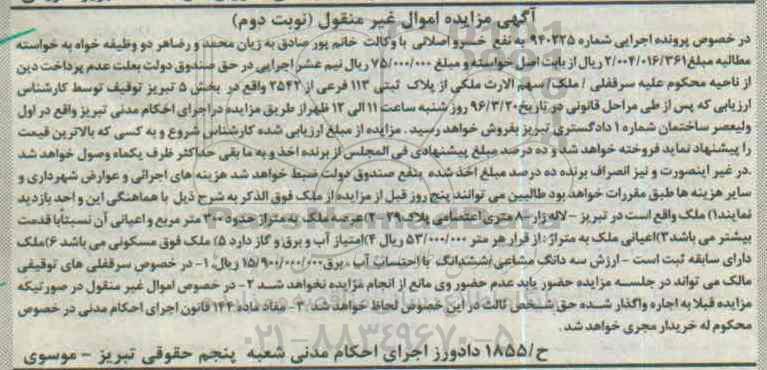 آگهی مزایده اموال غیر منقول (نوبت دوم)
در خصوص پرونده اجرایی شماره ۹۴۰۲۲۵ به نفع خسرو اصلانی با وکالت خانم پور صادق به زیان محمد و رضاهر دو وظیفه خواه به خواسته
مطالبه مبلغ ۲/۰۰۴/۰۱۶/۳۶۱ ریال از بابت اصل خواسته و مبلغ ۷۵/۰۰۰/۰۰۰ ریال نیم عشر اجرایی در حق صندوق دولت بعلت عدم پرداخت دین
از ناحیه محکوم علیه سرقفلی / ملک / سهم الارث ملکی از پلاک ثبتی ۱۱۳ فرعی از ۲۵۴۲ واقع در بخش ۵ تبریز توقیف توسط کارشناس
ارزیابی که پس از طی مراحل قانونی در تاریخ ۹۶/۳/۲۰ روز شنبه ساعت ۱۱ الی ۱۲ ظهر از طریق مزایده در اجرای احکام مدنی تبریز واقع در اول
ولیعصر ساختمان شماره ۱ دادگستری تبریز بفروش خواهد رسید . مزایده از مبلغ ارزیابی شده کارشناس شروع و به کسی که بالاترین قیمت
را پیشنهاد نماید فروخته خواهد شد و ده درصد مبلغ پیشنهادی فی المجلس از برنده اخذ و به ما بقی حداکثر ظرف یکماه وصول خواهد شد
.در غیر اینصورت و نیز انصراف برنده ده درصد مبلغ اخذ شده بنفع صندوق دولت ضبط خواهد شد هزینه های اجرائی و عوارض شهرداری و
سایر هزینه ها طبق مقررات خواهد بود طالبین می توانند پنج روز قبل از مزایده از ملک فوق الذکر به شرح ذیل با هماهنگی این واحد بازدید
نمایند۱) ملک واقع است در تبریز - لاله زار -۸ متری اعتصامی پلاک ۲۹ -۲) عرصه ملک به متراژ حدود ۳۰۰ متر مربع و اعیانی آن نسبتاً با قدمت
بیشتر می باشد۳) اعیانی ملک به متراژ : از قرار هر متر ۵۳/۰۰۰/۰۰۰ ریال ۴) امتیاز آب و برق و گاز دارد ۵) ملک فوق مسکونی می باشد ۶) ملک
دارای سابقه ثبت است - ارزش سه دانگ مشاعی /ششدانگ با احتساب آب ، برق ۱۵/۹۰۰/۰۰۰/۰۰۰ ریال. ۱- در خصوص سرقفلی های توقیفی
مالک می تواند در جلسه مزایده حضور یابد عدم حضور وی مانع از انجام مزایده نخواهد شد ۲- در خصوص اموال غیر منقول در صورتیکه
مزایده قبلا به اجاره واگذار شده حق شخص ثالث در این خصوص لحاظ خواهد شد. ۳- مفاد ماده ۱۴۴ قانون اجرای احکام مدنی در خصوص
محکوم له خریدار مجری خواهد شد.
۰۲۱-۸۸۳۴۹۶۷۰-۵
ح/۱۸۵۵ دادورز اجرای احکام مدنی شعبه پنجم حقوقی تبریز - موسوی